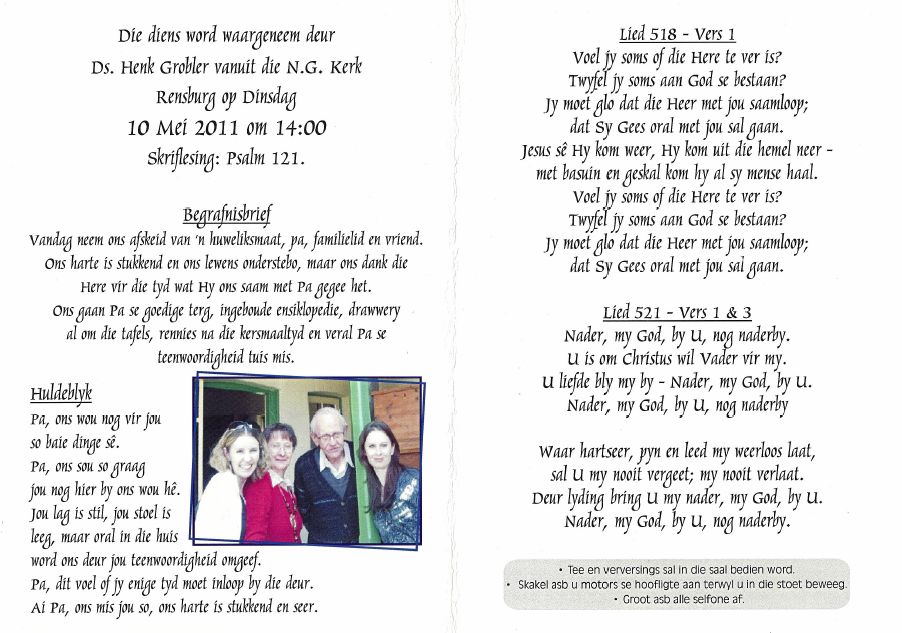 Die diens word waargeneem deur
Ds. Henk Grobler vanuit die N.G. Kerk
Rensburg op Dinsdag
10 Mei 2011 om 14:00
Skriflesing: Psalm 121.
Begrafnisbrief
Vandag neem ons afskeid van 'n huweliksmaat, pa, familielid en vriend.
Ons harte is stukkend en ons lewens onderstebo, maar ons dank die
Here vir die tyd wat Hy ons saam met Pa gegee het.
Ons gaan Pa se goedige terg, ingeboude ensiklopedie, drawwery
al om die tafels, rennies na die kersmaaltyd en veral Pa se
teenwoordigheid tuis mis.
Huldeblyk
Pa, ons wou nog vir jou
so baie dinge sê.
Pa, ons sou so graag
jou nog hier by ons wou hê.
Jou lag is stil, jou stoel is
leeg, maar oral in die huis
word ons deur jou teenwoordigheid omgeef.
Pa, dit voel of jy enige tyd moet inloop by die deur.
Ai Pa, ons mis jou so, ons harte is stukkend en seer.
Lied 518 - Vers 1
Voel jy soms of die Here te ver is?
Twyfel jy soms aan God se bestaan?
Jy moet glo dat die Heer met jou saamloop;
dat Sy Gees oral met jou sal gaan.
Jesus sê Hy kom weer, Hy kom uit die hemel neer -
met basuin en geskal kom hy al sy mense haal.
Voel jy soms of die Here te ver is?
Twyfel jy soms aan God se bestaan?
Jy moet glo dat die Heer met jou saamloop;
dat Sy Gees oral met jou sal gaan.
Lied 521 - Vers 1 & 3
Nader, my God, by U, nog naderby.
U is om Christus wil Vader vir my.
U liefde bly my by - Nader, my God, by U.
Nader, my God, by U, nog naderby
Waar hartseer, pyn en leed my weerloos laat,
sal U my nooit vergeet; my nooit verlaat.
Deur lyding bring U my nader, my God, by U.
Nader, my God, by U, nog naderby.
• Tee en verversings sal in die saal bedien word.
• Skakel asb u motors se hoofligte aan terwyl u in die stoet beweeg.
• Groot asb alle selfone af.